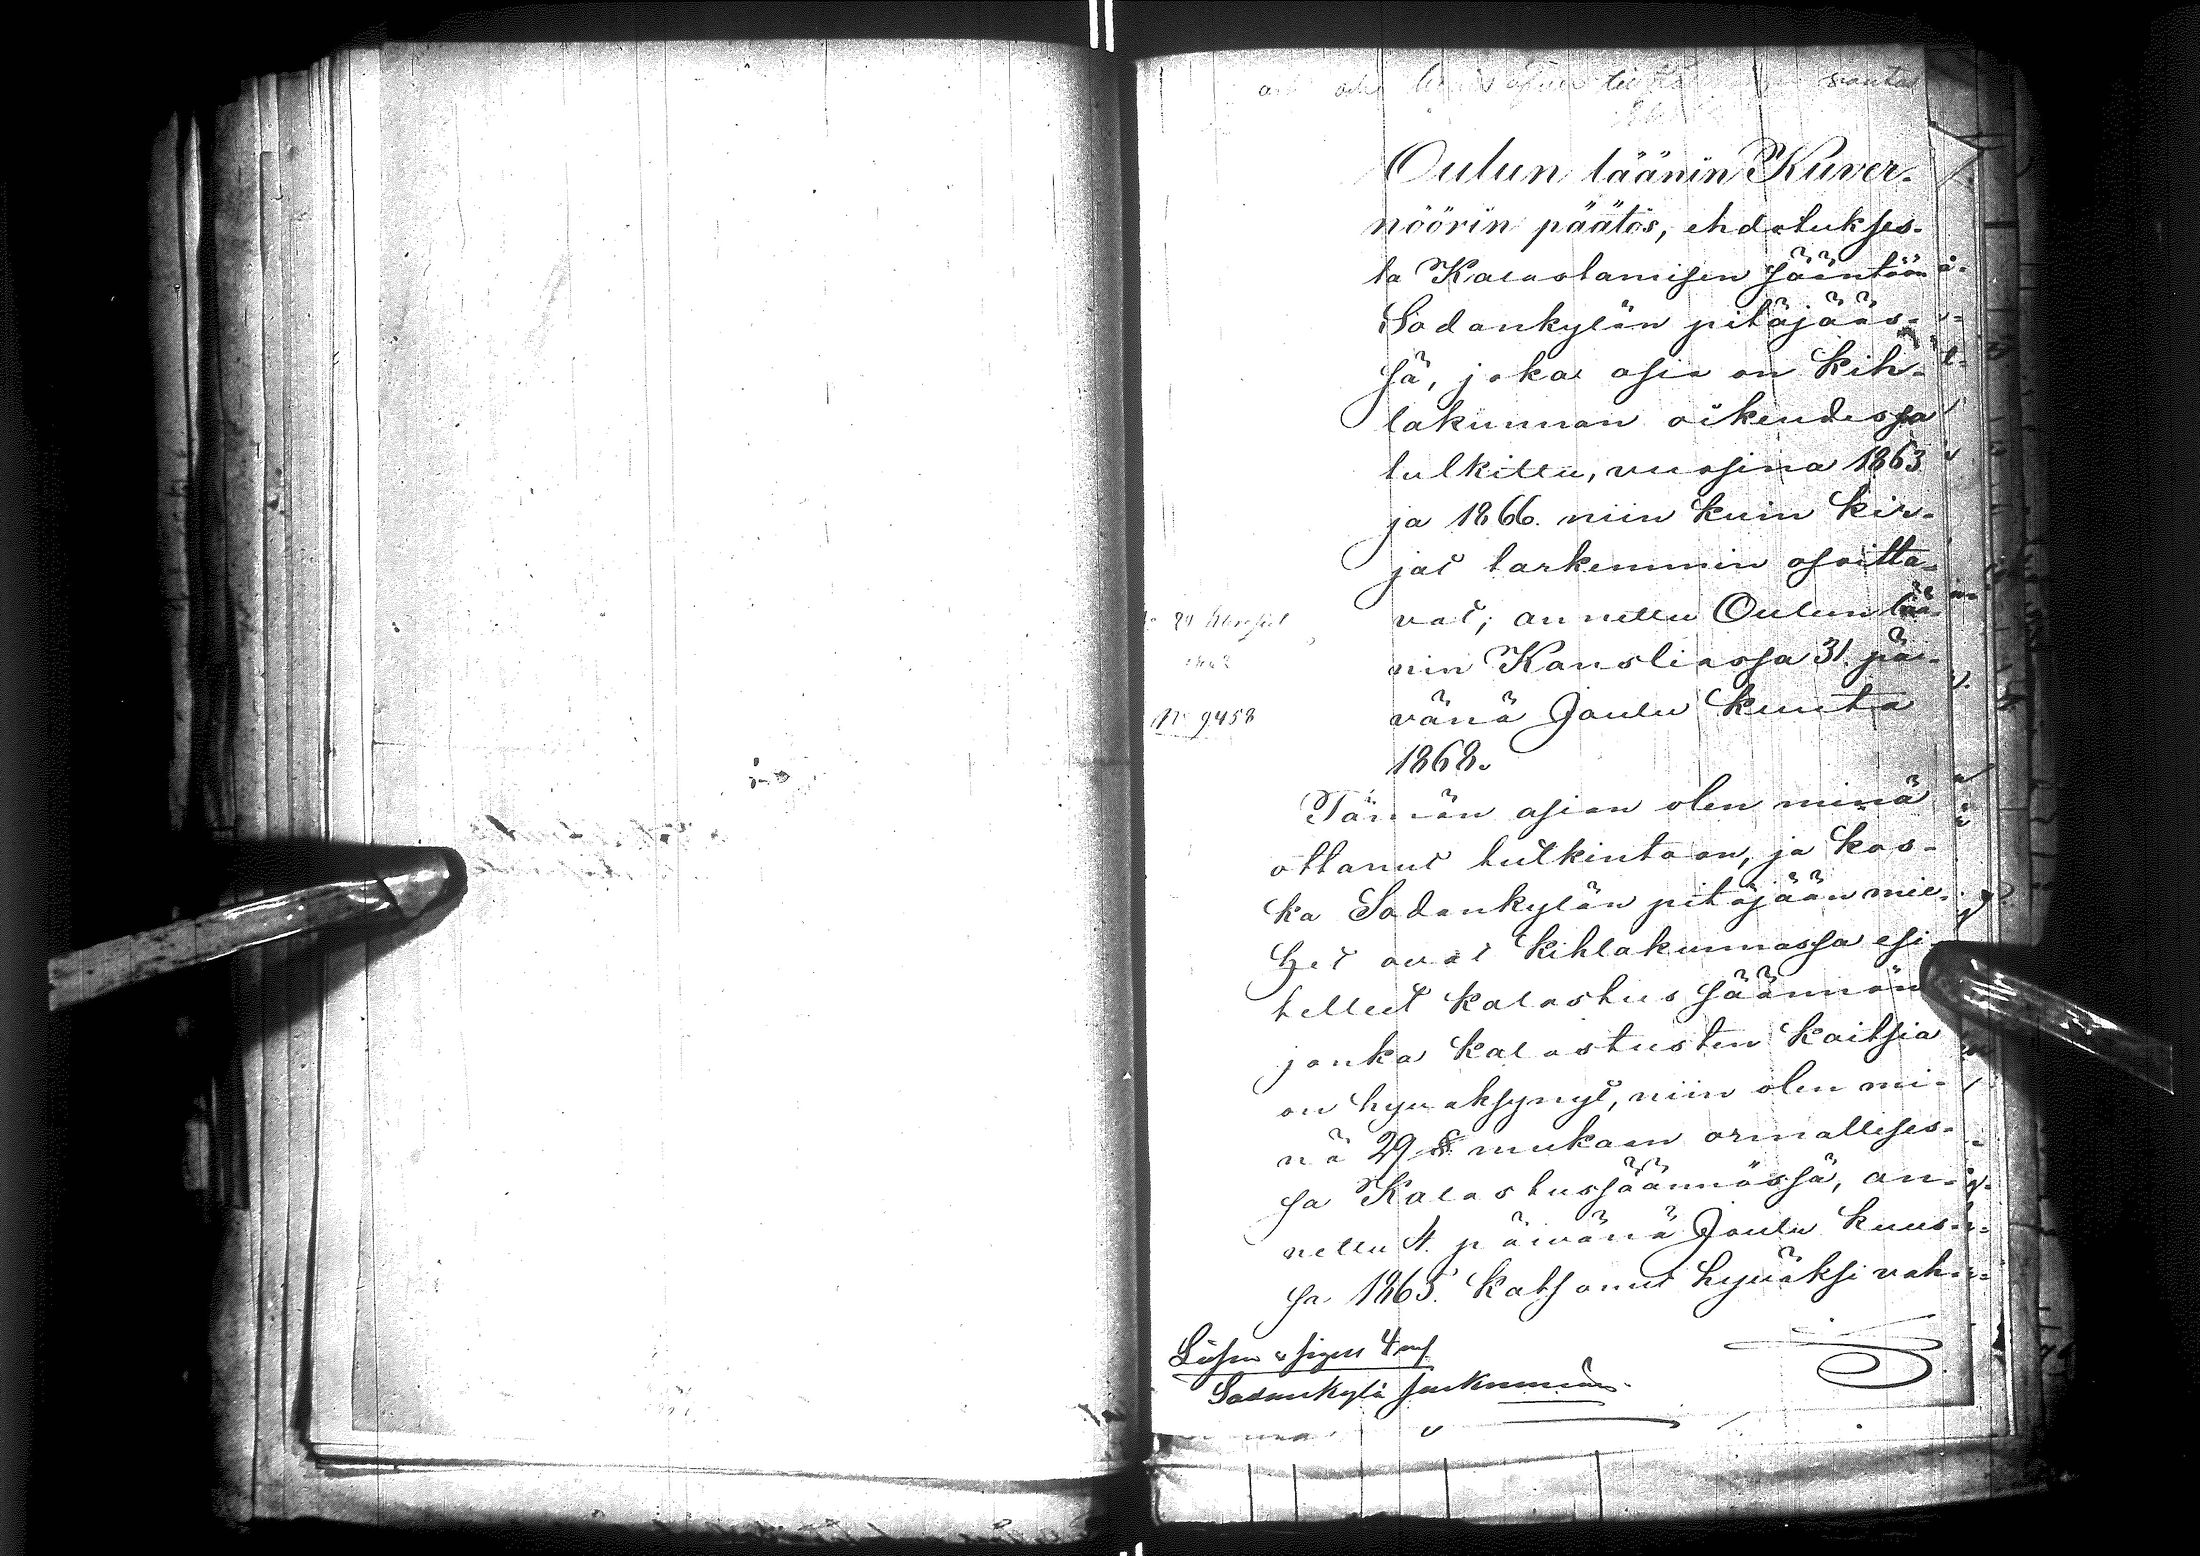 Oulun läänin Kuver-
nöörin päätös, ehdotukses-
ta Kalastamisen sääntöön
Sodankylän pitäjääs-
sä, joka asia on Kih-
lakunnan oikeudessa
tulkittu, vuosina 1863
ja 1866. niin kuin kir-
jat tarkemmin osoitta-
vat; annettu Oulun lää-
nin Kansliassa 31. päi-
vänä Joulu kuuta
1868.
No 9458
Tämän asian olen minä
ottanut tulkintaan, ja kos-
ka Sodankylän pitäjään mie-
het ovat Kihlakunnassa esi-
telleet kalastus säännön
jonka kalastusten kaitsia
on hyväksynyt, niin olen mi-
nä 29 § mukaan armollises-
sa Kalastussäännössä, an-
nettu 4. päivänä Joulu kuus-
sa 1865. katsonut hyväksi vah-
Sodankylä